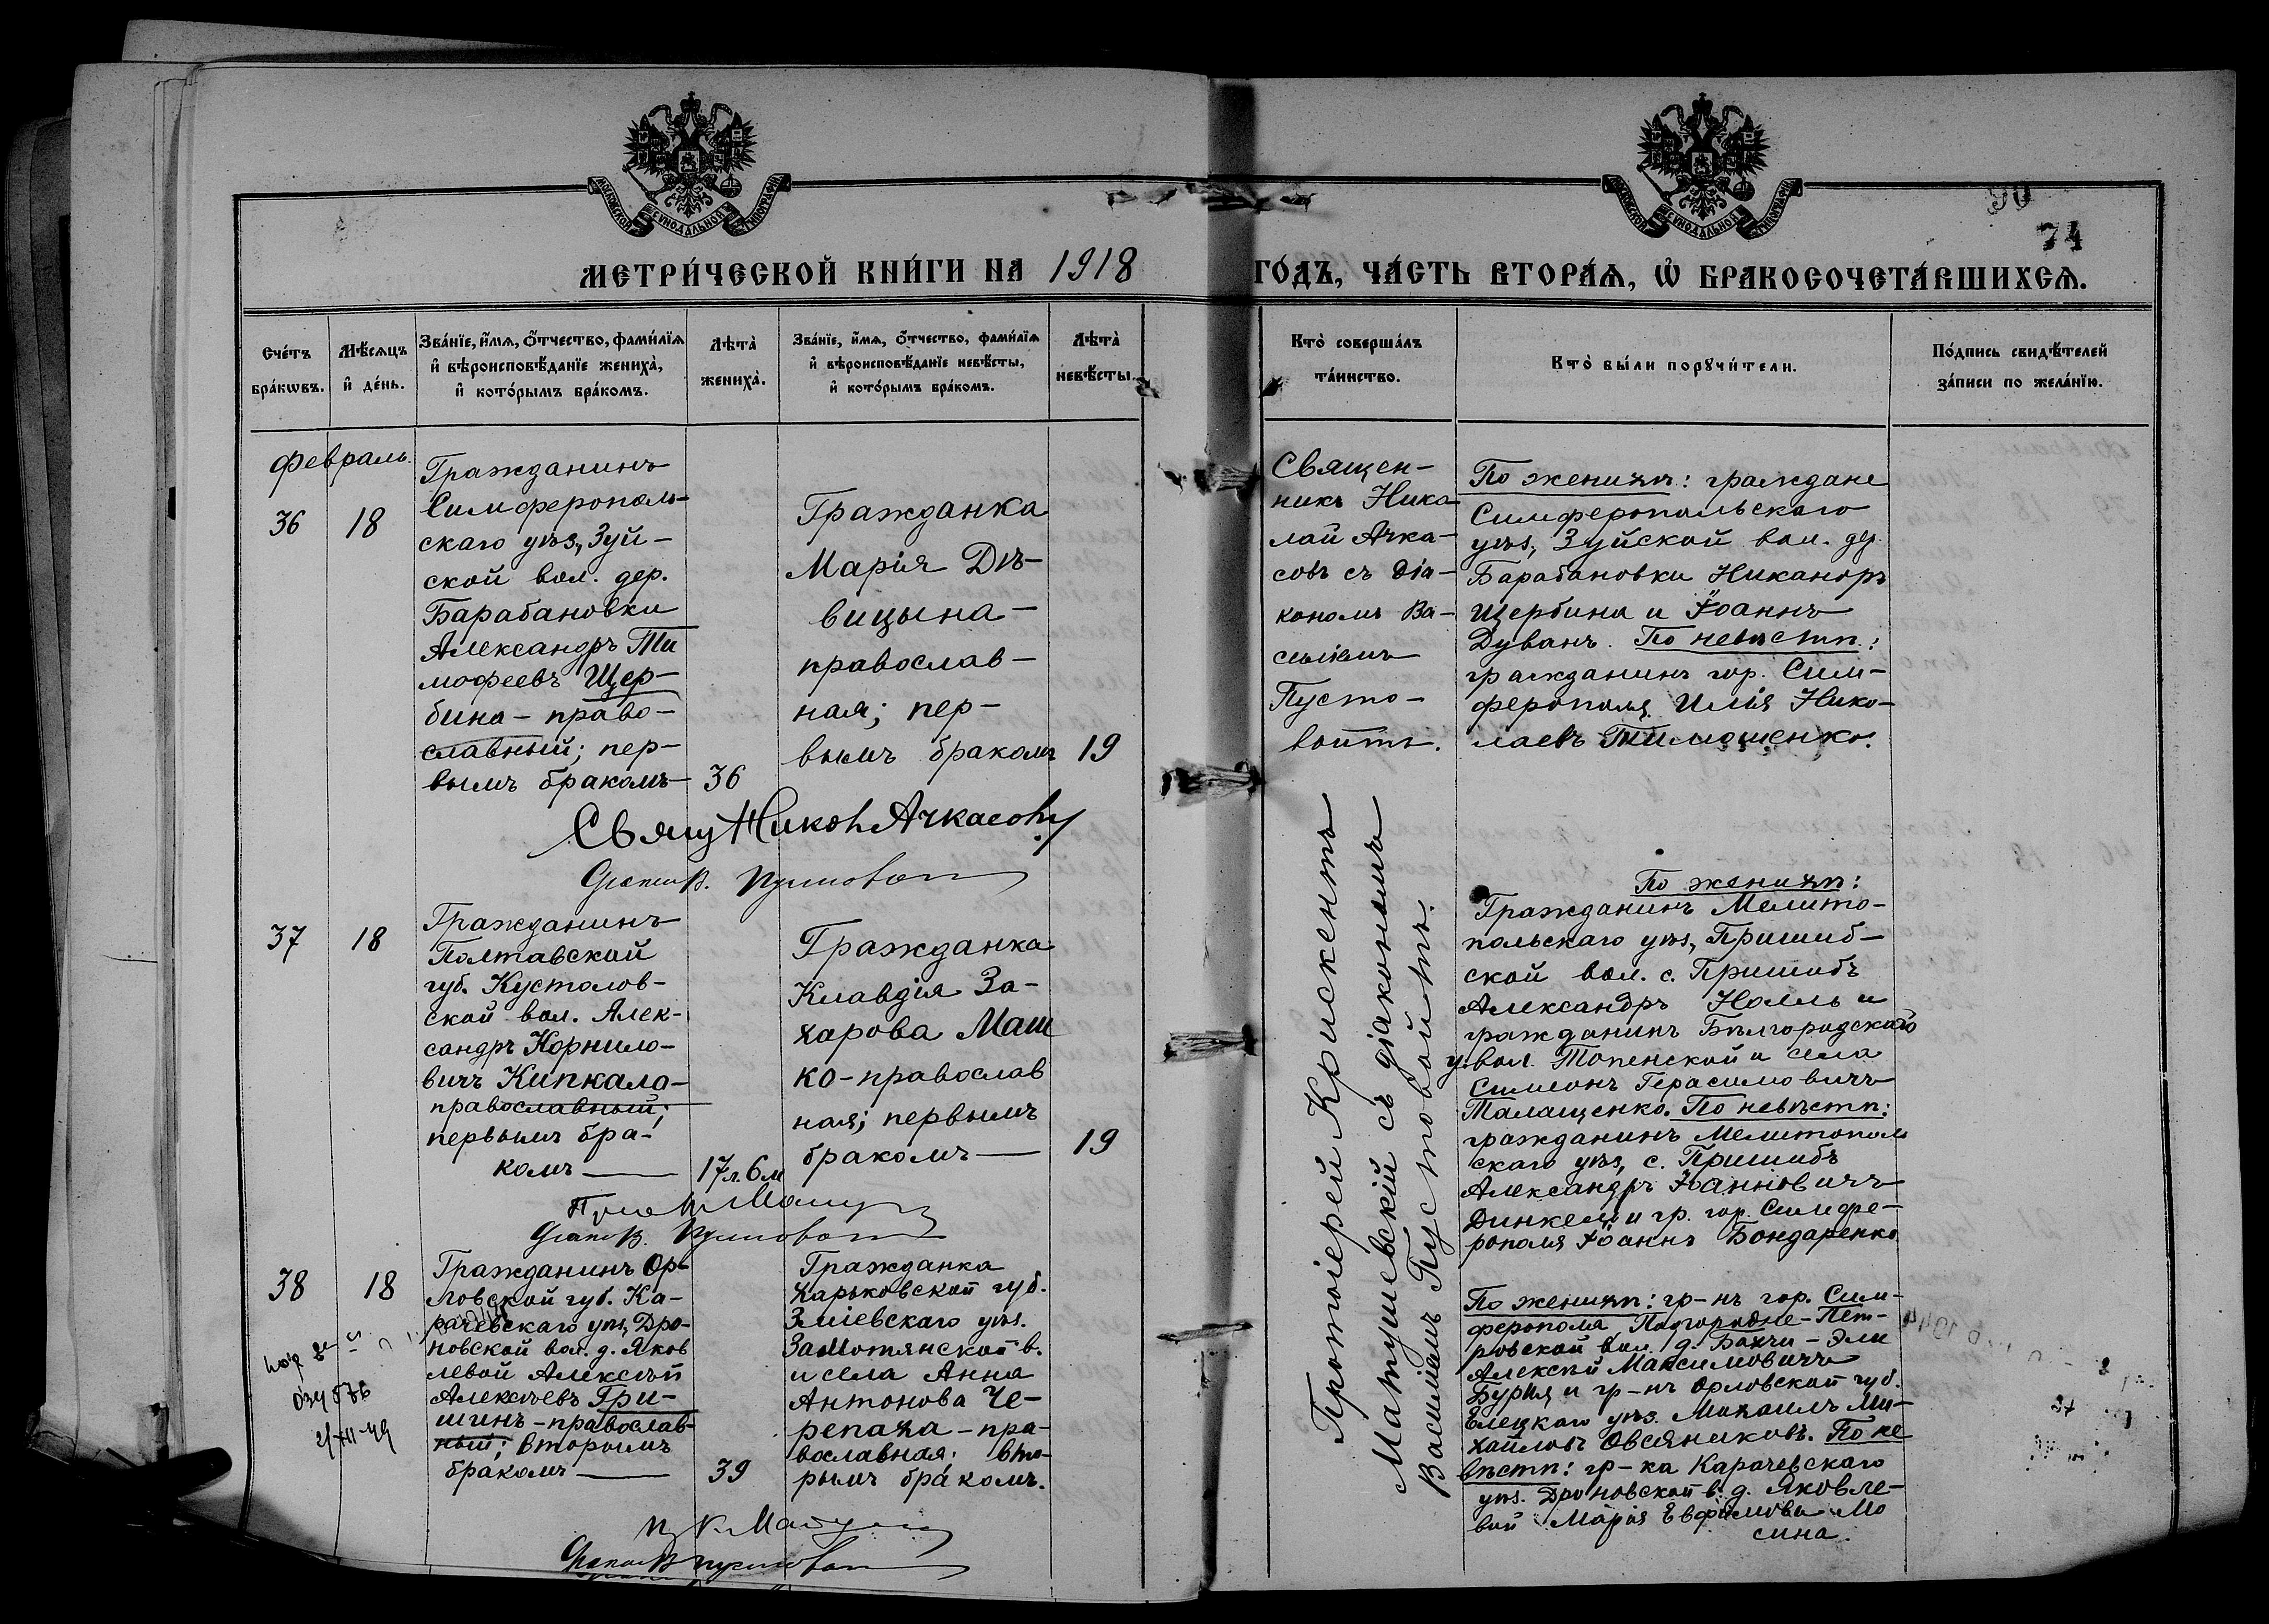 90
74
МЕТРИ́ЧЕСКОЙ КНИ́ГИ НА 1918 ГО́ДЪ, ЧА́СТЬ ВТОРА́Ѧ, Ѽ БРАКОСОЧЕТА́ВШИХСѦ.
МОСКОВСКОЙ СѴНОДАЛЬНОЙ ТИПОГРАФІИ
МОСКОВСКОЙ СѴНОДАЛЬНОЙ ТИПОГРАФІИ
Сче́тъ бра́кѡвъ.
Мѣ́сяцъ и҆ де́нь.
Зва́нїе, и҆́мѧ, ѻ҆́тчество, фами́лїѧ
и҆ вѣроисповѣ́данїе жениха̀,
и҆ кото́рымъ бра́комъ.
Лѣта̀ жениха̀.
Зва́нїе, и҆́мѧ, ѻ҆́тчество, фами́лїѧ
и҆ вѣроисповѣ́данїе невѣ́сты,
и҆ кото́рымъ бра́комъ.
Лѣта̀ невѣ́сты.
Кто̀ соверша́лъ
та́инство.
Кто̀ бы́ли порꙋчи́тели.
По́дпись свидѣ́телей
за́писи по жела́нїю.
февраль.
36
18
Гражданинъ
Симферополь-
скаго уѣз., Зуй-
ской вол. дер.
Барабановки
Александръ Ти
мофеевъ Щер-
бина - право-
славный; пер-
вымъ бракомъ
36
Гражданка
Марія Дѣ-
вицына -
православ-
ная; пер-
вымъ бракомъ
19
Священ-
никъ Нико
лай Ачка-
совъ съ діа-
кономъ Ва-
силіемъ
Пусто-
войтъ.
По женихѣ: граждане
Симферопольскаго
уѣз., Зуйской вол. дер.
Барабановки Никаноръ
Щербина и Іоаннъ
Дуванъ. По невѣстѣ:
гражданинъ гор. Сим-
ферополя Илія Нико-
лаевъ Тимошенко.
Свящ Никол Ачкасовъ
Діаконъ В. Пустовойт
37
18
Гражданинъ
Полтавской
губ. Кустолов-
ской вол. Алек-
сандръ Корнило-
вичъ Кипкало-
православный;
первымъ бра-
комъ
17 л. 6 м
Гражданка
Клавдія За-
харова Маш
ко - православ
ная; первымъ
бракомъ
19
Протоіерей Крискентъ
Матушевскій съ діакономъ
Василіемъ Пустовойтъ.
По женихѣ:
Гражданинъ Мелито-
польскаго уѣз., Пришиб-
ской вол. с. Пришибъ
Александръ Нолль и
гражданинъ Бѣлгородскаго
у. вол. Топенской и села
Симеонъ Герасимовичъ
Талащенко. По невѣстѣ:
гражданинъ Мелитополь
скаго уѣз., с. Пришибъ
Александръ Іоанновичъ
Динкель и гр. гор. Симфе-
рополя Іоаннъ Бондаренко
Діаконъ В. Пустовойт
38
18
Гражданинъ Ор-
ловской губ. Ка-
рачевскаго уѣз., Дро-
новской вол. д. Яков
левой Алексѣй
Алексѣевъ Гри-
шинъ - православ-
ный; вторымъ
бракомъ
39
Гражданка
Харьковской губ.
Зміевскаго уѣз.
Замотянской в.
и села Анна
Антонова Че-
репаха - пра-
вославная; вто-
рымъ бракомъ.
По женихѣ: гр-нъ гор. Сим-
ферополя Подгородне-Пет-
ровской вол. д. Бахчи-Эли
Алексѣй Максимовичъ
Бурня и гр-нъ Орловской губ.
Елецкаго уѣз. Михаилъ Ми-
хайловъ Овсяниковъ. По не
вѣстѣ: гр-ка Карачевскаго
уѣз. Дроновской в. д. Яковле-
вой Марія Евфимова Мо
сина.
Діаконъ В Пустовойт